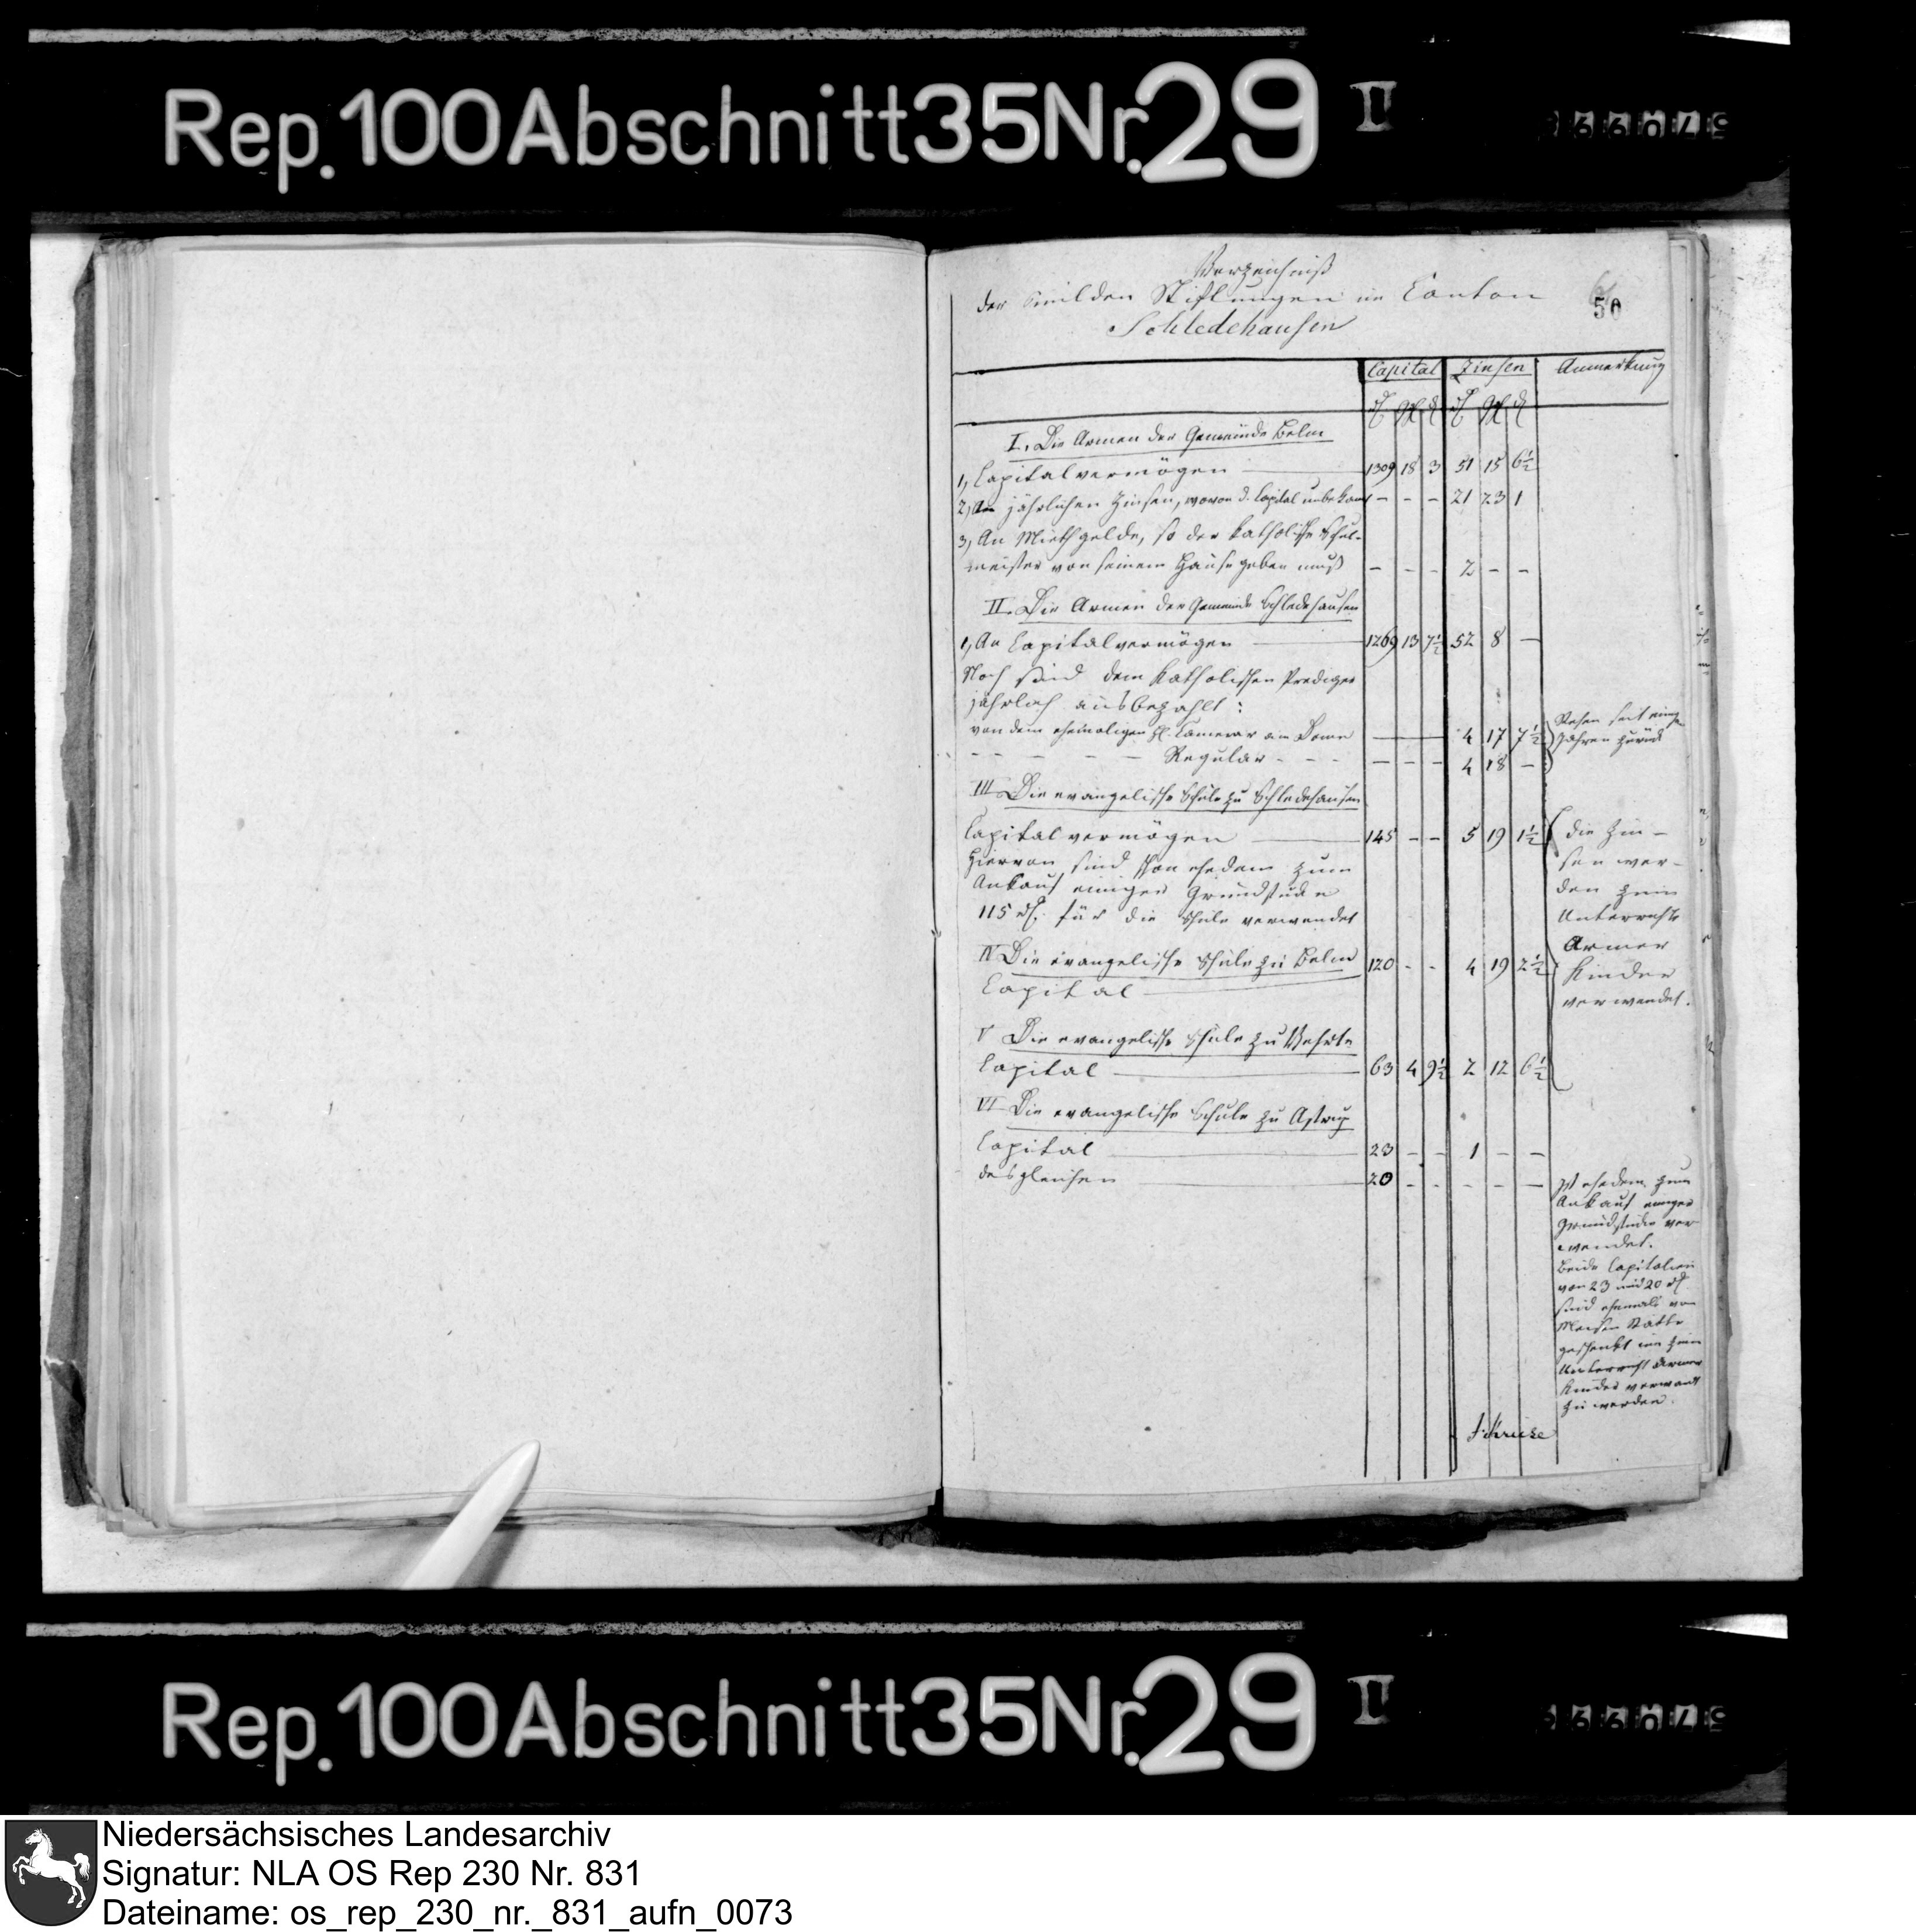 Rep. 100 Abschnitt 35 Nr. 29 II
Verzeichniß
der milden Stiftungen im Canton
Schledehausen
50
Capital Zinsen Anmerkung
I. Die Armen der Gemeinde Belm
1, Capitalvermögen 1309 18 3 51 15 6½
2, An jährlichen Zinsen, wovon d. Capital unbekant - - - 21 23 1
3, An Miethgelde, so der katholische Schul-
meister von seinem Hause geben muß - - - 2 - -
II. Die Armen der Gemeinde Schledehausen
1, An Capitalvermögen 1269 13 7½ 52 8 -
Noch sind dem katholischen Prediger
jährlich ausbezahlt:
von dem ehemaligen Camerar am Dome 4 17 7½
- - - - Regular - - - - - - 4 18 -
Stehen seit einigen
Jahren zurück
III Die evangelische Schule zu Schledehausen
Capitalvermögen 145 - - 5 19 1½
Hiervon sind schon ehedem zum
Ankauf einiger Grundstücke
115 für die Schule verwendet
IV Die evangelische Schule zu Belm 120 - - 4 19 2½
Capital
V Die evangelische Schule zu Vehrte
Capital 63 4 9½ 2 12 6½
die Zin-
sen wer-
den zum
Unterricht
Armer
Kinder
verwendet.
VI Die evangelische Schule zu Astrup
Capital 23 - - 1 - -
desgleichen 20 - - - - -
Ist ehedem zum
Ankauf einiger
Grundstücke ver-
wendet.
Beide Capitalien
von 23 und 20
sind ehemals von
geschenkt um zum
Unterricht Armer
Kinder verwandt
zu werden.
Kruse
Rep. 100 Abschnitt 35 Nr. 29 II
Niedersächsisches Landesarchiv
Signatur: NLA OS Rep 230 Nr. 831
Dateiname: os_rep_230_nr._831_aufn_0073